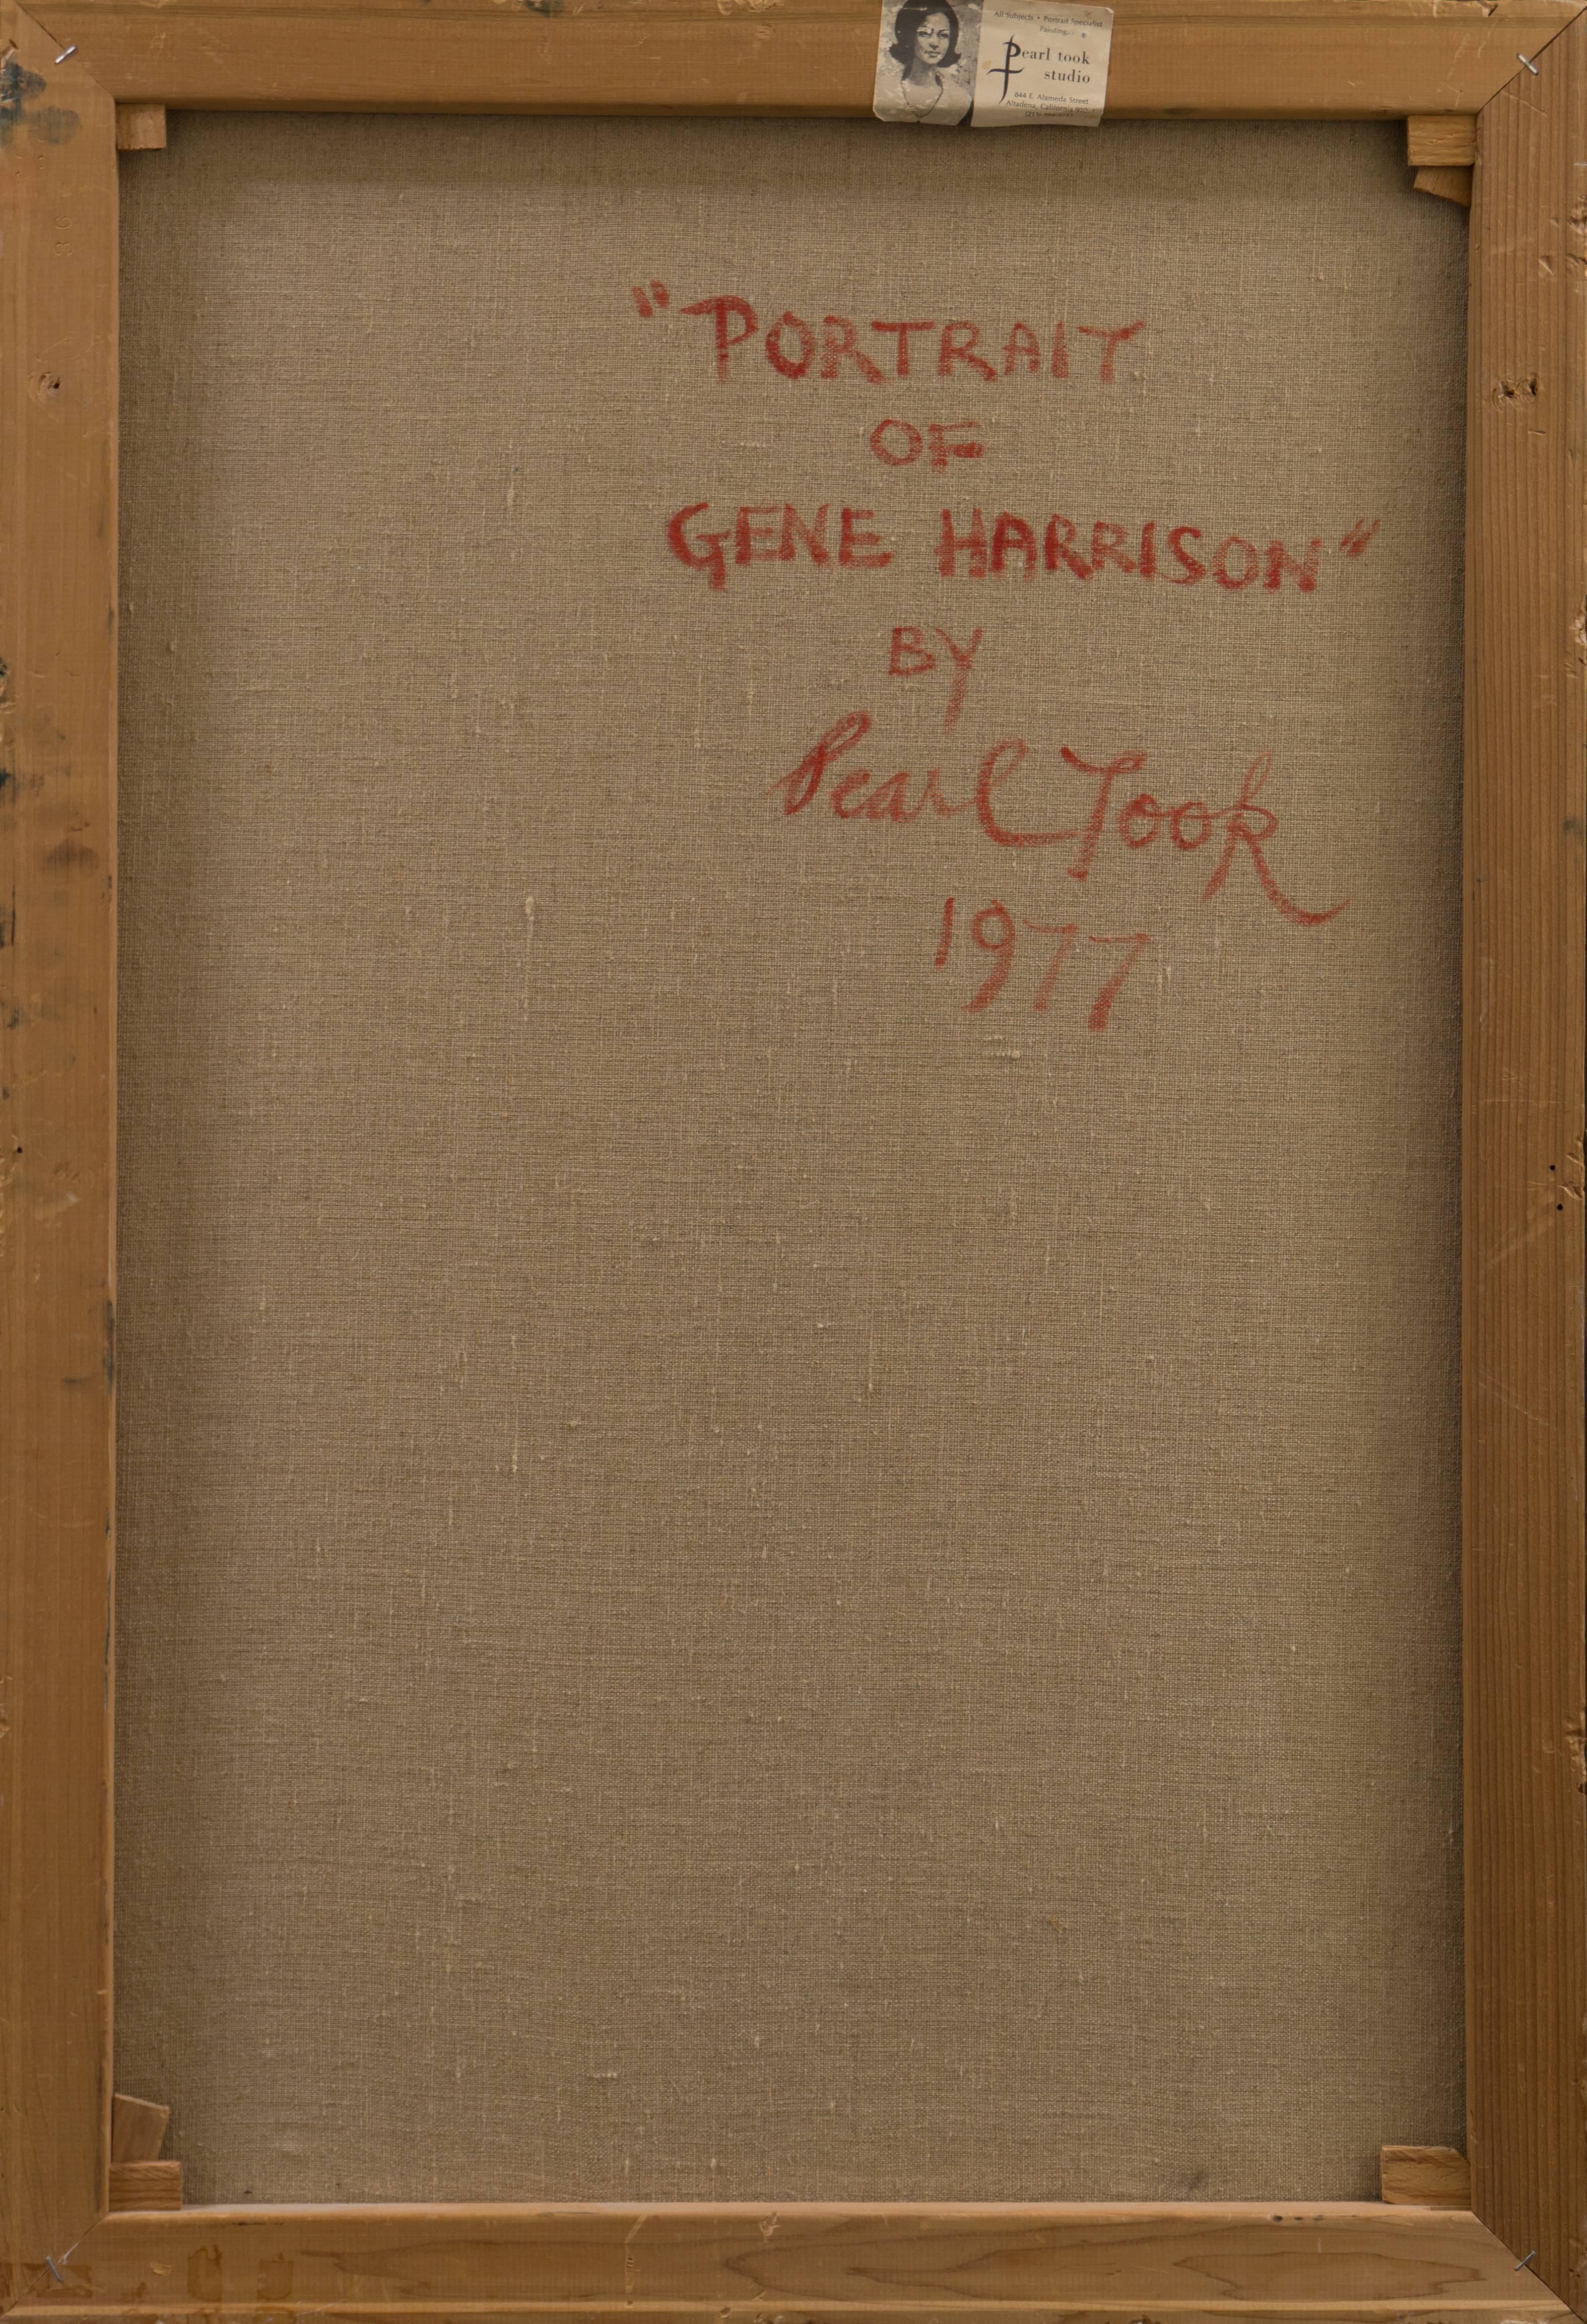 All Subjects • Portrait Specialist
Painting
Pearl took
studio
844 E. Alameda Street
Altadena, California
"PORTRAIT
OF
GENE HARRISON"
BY
Pearl Took
1977